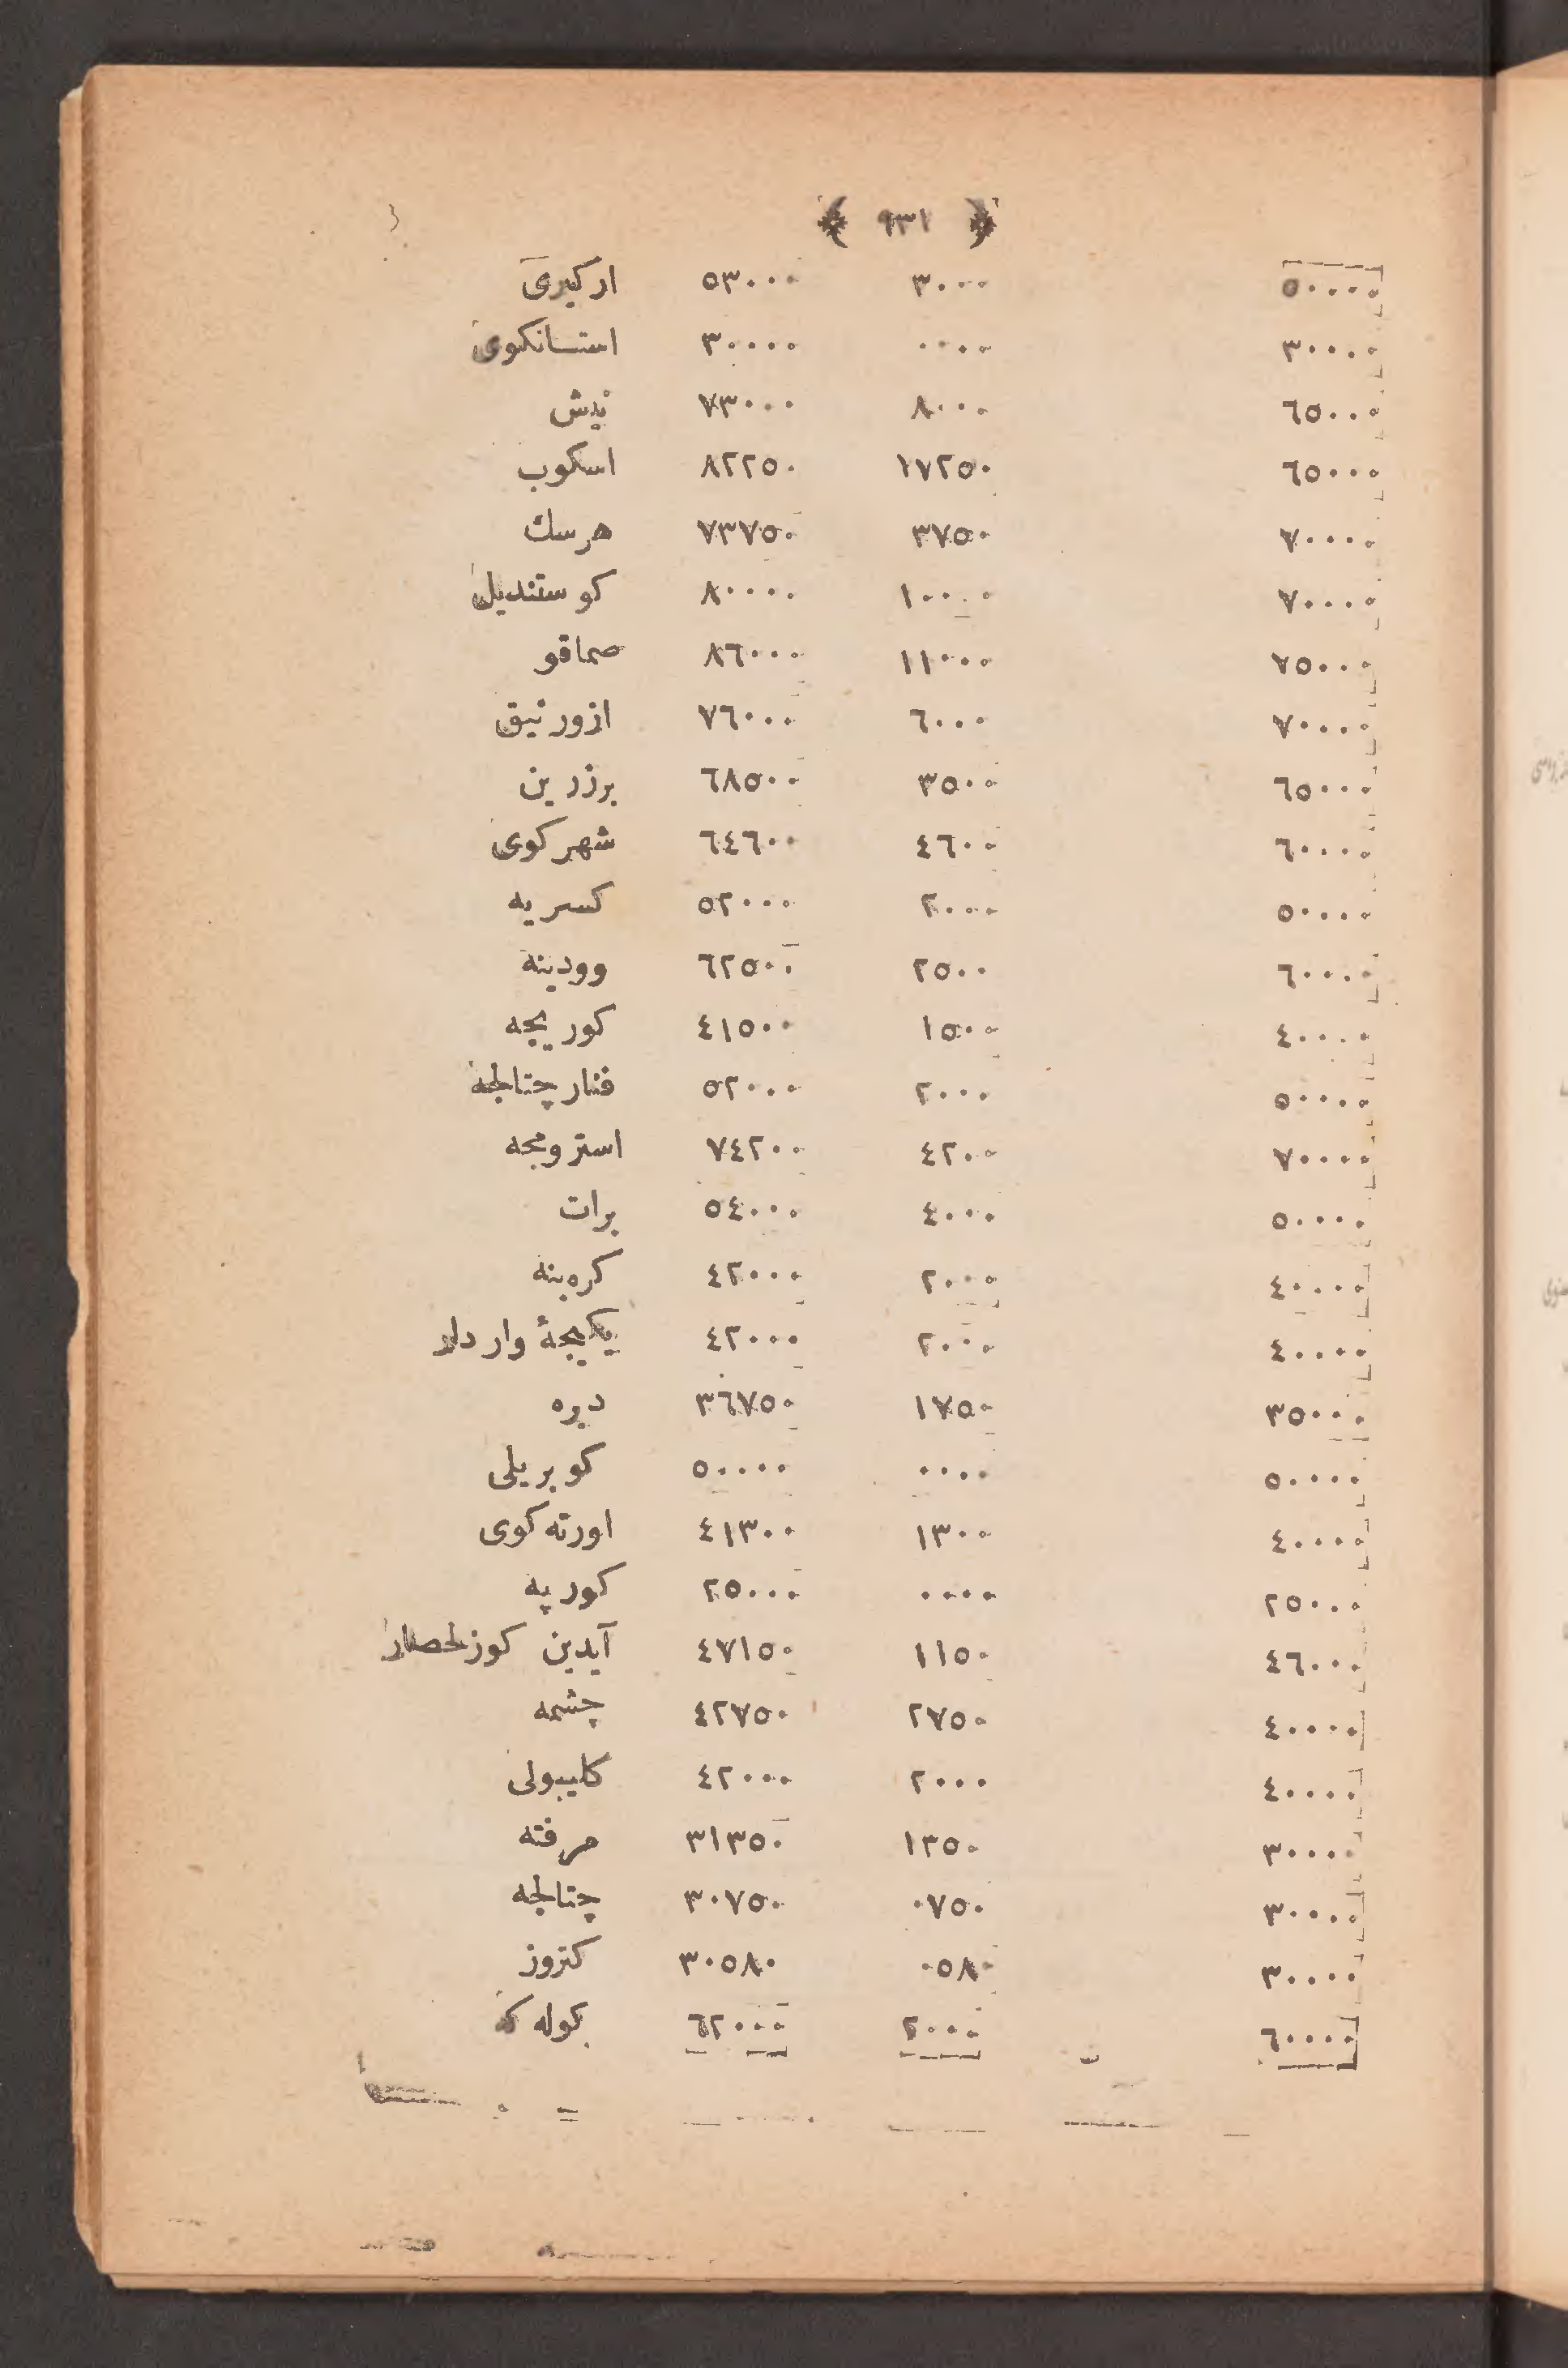 ﴿ ٩٣١ ﴾
٥٠٠٠٠ ٣٠٠٠ ٥٣٠٠٠ اركيرى
٣٠٠٠٠ ٠٠٠٠ ٣٠٠٠٠ استانكوى
٦٥٠٠٠ ٨٠٠٠ ٧٣٠٠٠ نيش
٦٥٠٠٠ ١٧٢٥٠ ٨٢٢٥٠ اسكوب
٧٠٠٠٠ ٣٧٥٠ ٧٣٧٥٠ هرسك
٧٠٠٠٠ ١٠٠٠٠ ٨٠٠٠٠ كوستنديل
٧٥٠٠٠ ١١٠٠٠ ٨٦٠٠٠ صماقو
٧٠٠٠٠ ٦٠٠٠ ٧٦٠٠٠ ازورنيق
٦٥٠٠٠ ٣٥٠٠ ٦٨٥٠٠ برزرين
٦٠٠٠٠ ٤٦٠٠ ٦٤٦٠٠ شهركوى
٥٠٠٠٠ ٢٠٠٠ ٥٢٠٠٠ كسريه
٦٠٠٠٠ ٢٥٠٠ ٦٢٥٠٠ وودينه
٤٠٠٠٠ ١٥٠٠ ٤١٥٠٠ كوريجه
٥٠٠٠٠ ٢٠٠٠ ٥٢٠٠٠ فنار چتالجه
٧٠٠٠٠ ٤٢٠٠ ٧٤٢٠٠ استرومجه
٥٠٠٠٠ ٤٠٠٠ ٥٤٠٠٠ برات
٤٠٠٠٠ ٢٠٠٠ ٤٢٠٠٠ كره‌بنه
٤٠٠٠٠ ٢٠٠٠ ٤٢٠٠٠ يكيجۀ واردار
٣٥٠٠٠ ١٧٥٠ ٣٦٧٥٠ دبره
٥٠٠٠٠ ٠٠٠٠ ٥٠٠٠٠ كوبريلى
٤٠٠٠٠ ١٣٠٠ ٤١٣٠٠ اورته كوى
٢٥٠٠٠ ٠٠٠٠ ٢٥٠٠٠ كورپه
٤٦٠٠٠ ١١٥٠ ٤٧١٥٠ آيدين كوزلحصار
٤٠٠٠٠ ٢٧٥٠ ٤٢٧٥٠ چشمه
٤٠٠٠٠ ٢٠٠٠ ٤٢٠٠٠ كليبولى
٣٠٠٠٠ ١٣٥٠ ٣١٣٥٠ مرفته
٣٠٠٠٠ ٠٧٥٠ ٣٠٧٥٠ چتالجه
٣٠٠٠٠ ٠٥٨٠ ٣٠٥٨٠ كتروز
٦٠٠٠٠ ٢٠٠٠ ٦٢٠٠٠